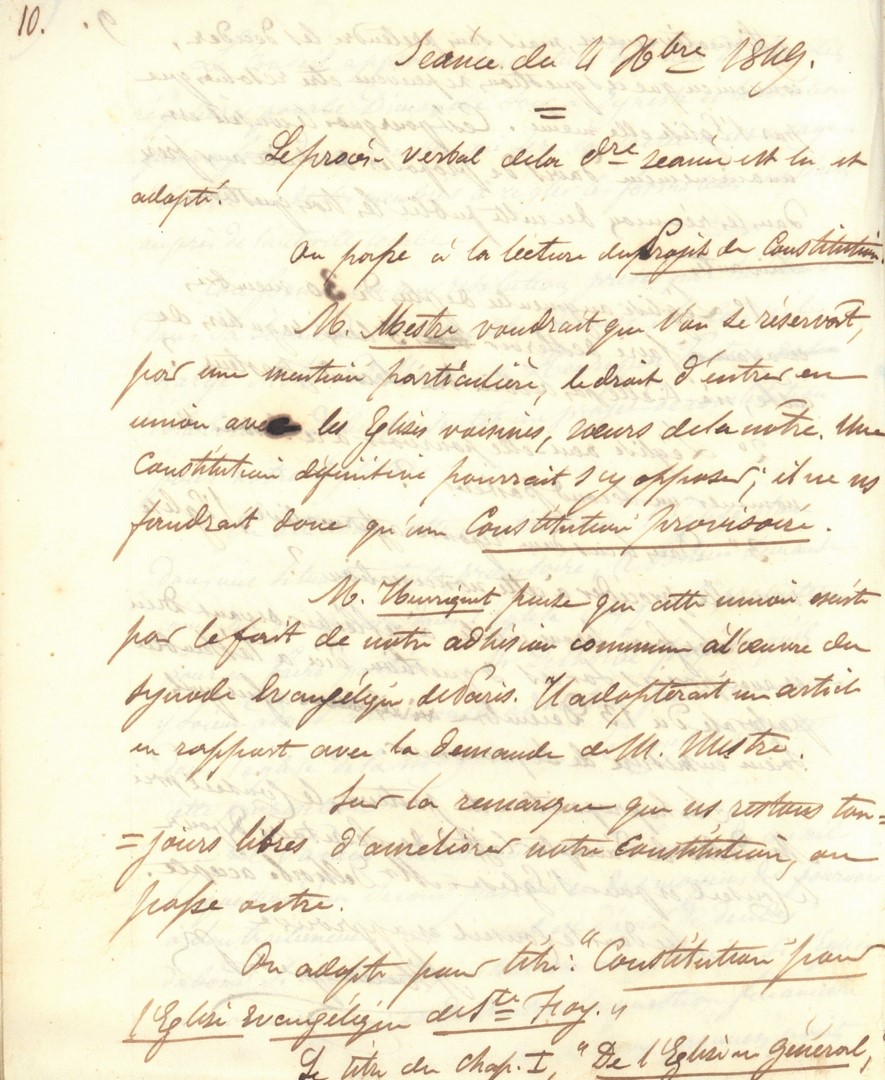 10.
Séance du 4 Xbre 1849.
Le procès-verbal de la dre séance est lu et
adopté.
On passe à la lecture du Projet de Constitution.
M. Mestre voudrait que l'on se réservât,
par une mention particulière, le droit d'entrer en
union avec les Eglises voisines, sœurs de la nôtre. Une
Constitution définitive pourrait s'y opposer; il ne ns
faudrait donc qu'une Constitution provisoire.
M. Hurriguet pense que cette union existe
par le fait de notre adhésion commune à l'œuvre du
synode Evangélique de Paris. Il adopterait un article
en rapport avec la demande de M. Mestre.
Sur la remarque que ns restons tou=
=jours libres d'améliorer notre Constitution, on
passe outre.
On adopte pour titre: "Constitution pour
l'Eglise Evangélique de Ste Foy."
Le titre du chap. I, "De l'Eglise en général,"